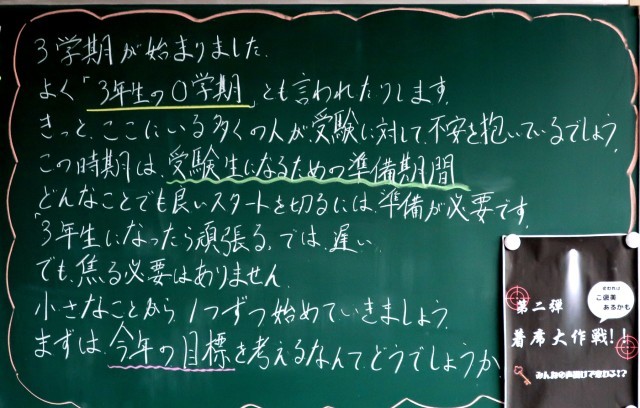 3学期が始まりました.
よく「3年生の〇学期」とも言われたりします.
きっと、ここにいる多くの人が受験に対して、不安を抱いているでしょう.
この時期は、受験生になるための準備期間
どんなことでも良いスタートを切るには、準備が必要です.
「3年生になったら頑張る」では、遅い.
でも、焦る必要はありません.
小さなことから1つずつ始めていきましょう.
まずは、今年の目標を考えるなんて、どうでしょうか.
ご褒美
あるかも
第二弾
着席大作戦!!
みんなの声掛けで変わる!?